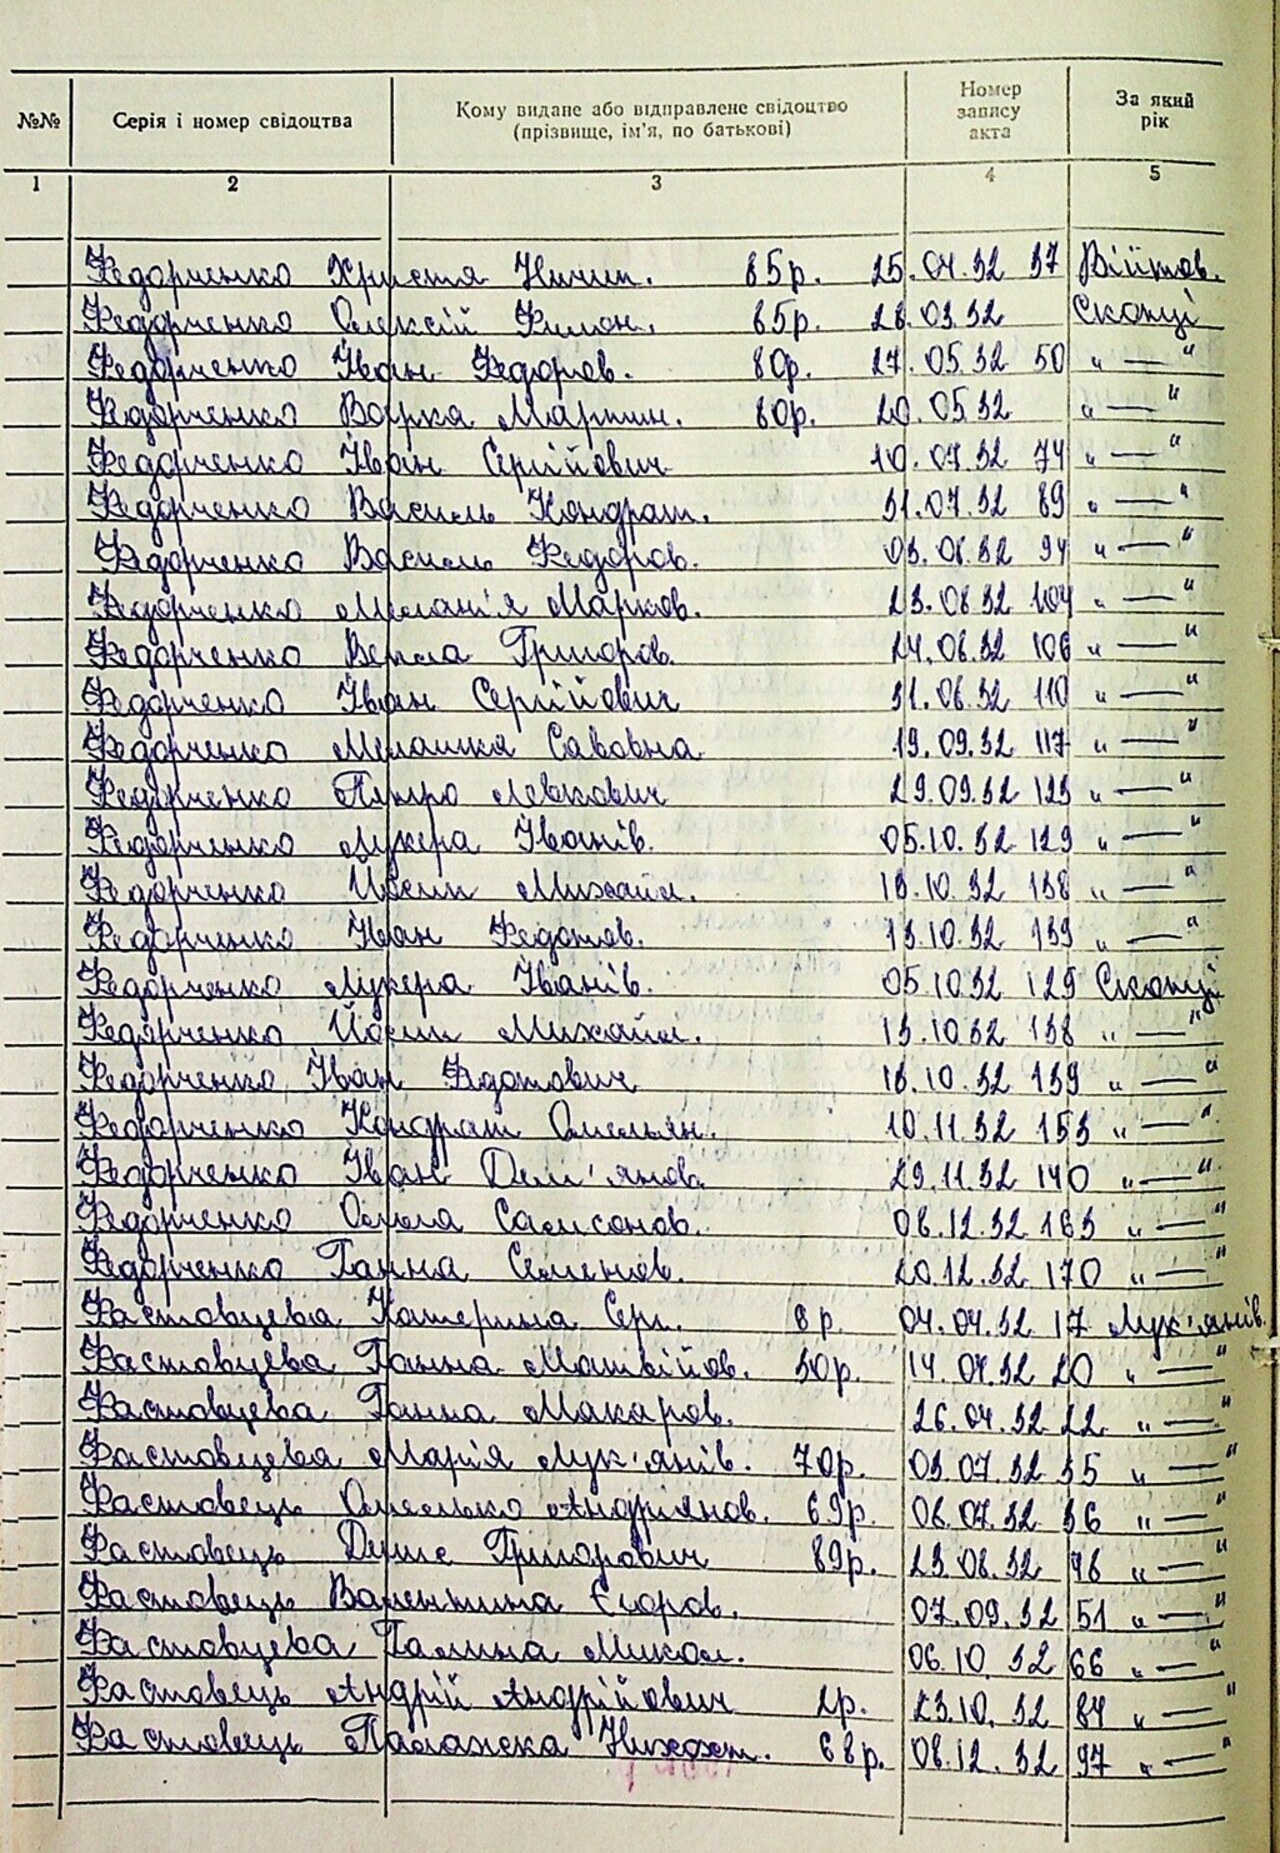 №№ Серія і номер свідоцтва Кому видане або відправлене свідоцтво (прізвище, ім'я, по батькові) Номер запису акта За який рік
1 2 3 4 5
Федорченко Христя Ничип. 85р. 25.04.32 37 Війтов.
Федорченко Олексій Филон. 65р. 28.03.32 Скопці
Федорченко Іван Федоров. 80р. 27.05.32 50 „—"
Федорченко Варка Мартин. 80р. 20.05.32 „—"
Федорченко Іван Сергійович 10.07.32 74 „—"
Федорченко Василь Кондрат. 31.07.32 89 „—"
Федорченко Василь Федоров. 03.08.32 94 „—"
Федорченко Меланія Марков. 23.08.32 104 „—"
Федорченко Векла Григоров. 24.08.32 106 „—"
Федорченко Іван Сергійович 31.08.32 110 „—"
Федорченко Мелашка Савовна 19.09.32 117 „—"
Федорченко Петро Левкович 29.09.32 123 „—"
Федорченко Лукера Іванів. 05.10.32 129 „—"
Федорченко Йосип Михайл. 13.10.32 138 „—"
Федорченко Іван Федотов. 13.10.32 139 „—"
Федорченко Лукера Іванів. 05.10.32 129 Скопці
Федорченко Йосип Михайл. 13.10.32 138 „—"
Федорченко Іван Федотович 13.10.32 139 „—"
Федорченко Кондрат Омельян. 10.11.32 153 „—"
Федорченко Іван Дем'янов. 29.11.32 140 „—"
Федорченко Ольга Самсонов. 08.12.32 163 „—"
Федорченко Ганна Семенов. 20.12.32 170 „—"
Фастовцева Катерина Серг. 8р. 04.04.32 17 Лук'янів.
Фастовцева Ганна Матвійов. 30р. 14.04.32 20 „—"
Фастовцева Ганна Макаров. 26.04.32 22 „—"
Фастовцева Марія Лук'янів. 70р. 03.07.32 35 „—"
Фастовець Омелько Андріянов. 69р. 06.07.32 36 „—"
Фастовець Денис Григорович 89р. 23.08.32 46 „—"
Фастовець Валентина Єгоров. 07.09.32 51 „—"
Фастовцева Галина Микол. 06.10.32 66 „—"
Фастовець Андрій Андрійович 2р. 23.10.32 84 „—"
Фастовець Палажка 68р. 08.12.32 97 „—"